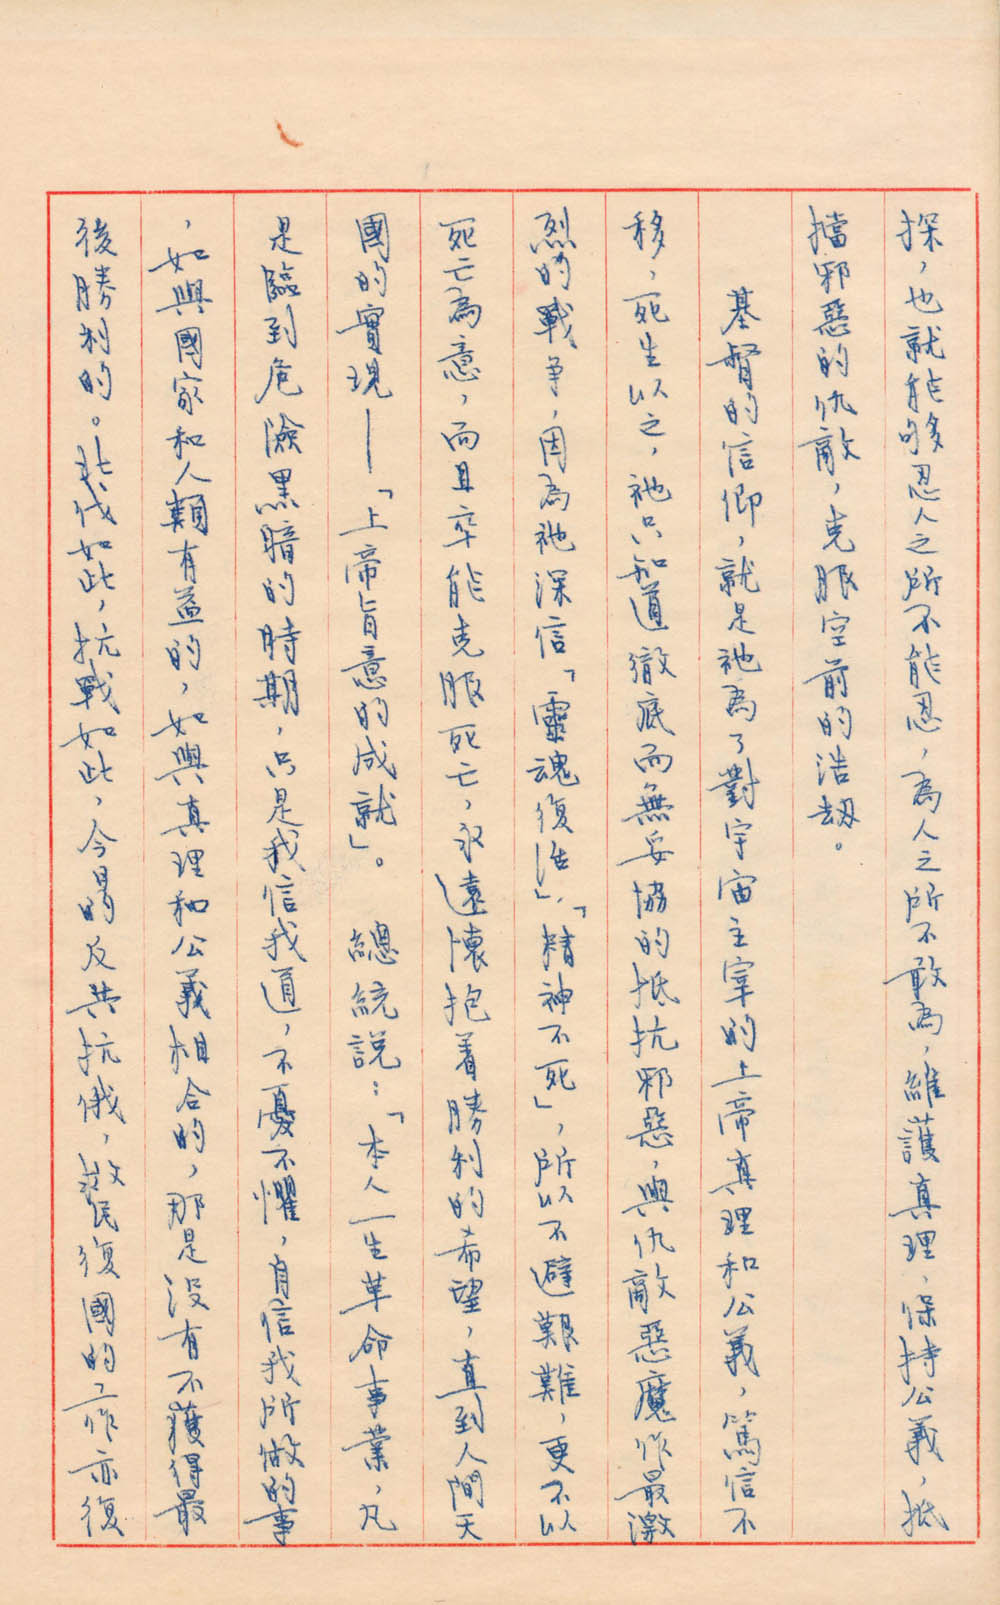 探，也就能够忍人之所不能忍，為人之所不敢為，維護真理、保持公義，抵
擋邪惡的仇敵，克服空前的浩劫。
基督的信仰，就是祂為了對宇宙主宰的上帝真理和公義，篤信不
移，死生以之，祂只知道徹底而無妥協的抵抗邪惡，與仇敵惡魔作最激
烈的戰爭，因為祂深信「靈魂復活」，「精神不死」，所以不避艱難，更不以
死亡為意，而且卒能克服死亡，永遠懷抱着勝利的希望，直到人間天
國的實現——「上帝旨意的成就」。　總統說：「本人一生革命事業，凡
是臨到危險黑暗的時期，只是我信我道，不憂不懼，自信我所做的事
，如與國家和人類有益的，如與真理和公義相合的，那是沒有不獲得最
後勝利的。北伐如此，抗戰如此，今日的反共抗俄，救民復國的工作亦復